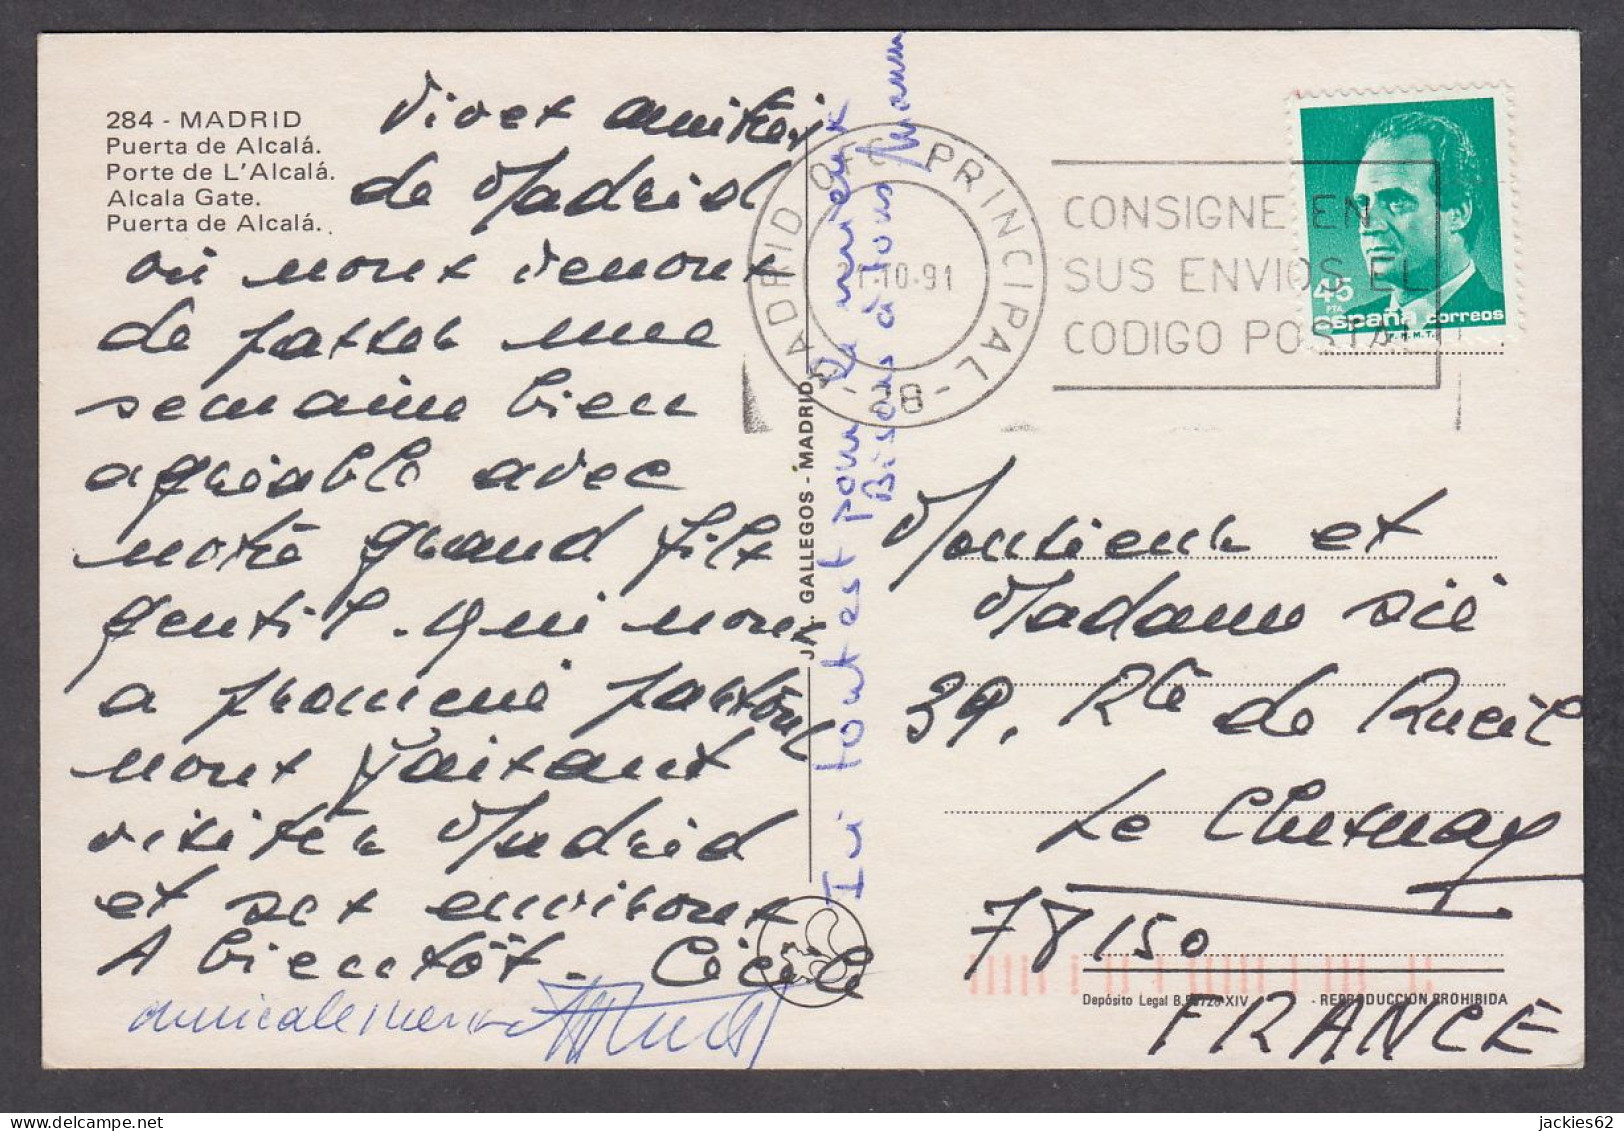 284 - MADRID
Puerta de Alcalá.
Porte de L'Alcalá.
Alcala Gate.
Puerta de Alcalá.
Vives amitiés
de Madrid
où nous venons
de passer une
semaine bien
agréable avec
notre grand fils
gentil. qui nous
a promené partout
nous faisant
visiter Madrid
et ses environs
A bientôt. Cécile
amicalement
J. GALLEGOS - MADRID
Ici tout est pour le mieux
Bisous à tous
MADRID OFC PRINCIPAL
1-10-91
-28-
CONSIGNE EN
SUS ENVIOS EL
CODIGO POSTAL
45
PTA
españa correos
F.N.M.T.
Monsieur et
Madame
39, Rte de Rueil
Le Chesnay
78150
FRANCE
Depósito Legal B. XIV
- REPRODUCCIÓN PROHIBIDA
jackies62